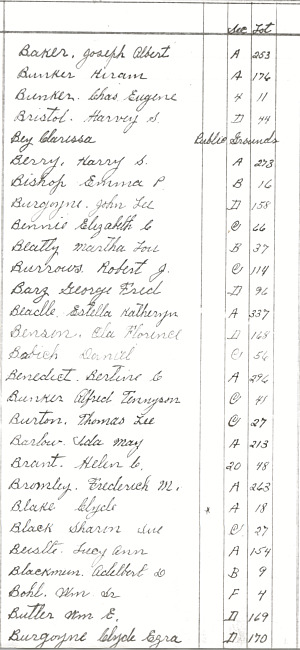 Sec Lot
Baker, Joseph Albert A 253
Bunker Hiram A 176
Bunker. Chas Eugene 4 11
Bristol. Harvey S. D 44
Bey Clarissa Public Grounds
Berry, Harry S. A 273
Bishop Emma P B 16
Burgoyne. John Lee D 158
Bennie Elizabeth C C 66
Beatty Martha Lou B 37
Burrows. Robert J. C 114
Barz George Fred D 96
Estella Katheryn A 337
Benson. Ela Florence D 168
Babich Daniel C 56
Benedict. Bertine C A 296
Bunker Alfred Tennyson C 41
Burton. Thomas Lee C 27
Barlow. Ida May A 213
Brant. Helen C. 20 48
Bromley. Frederick M. A 263
Blake Clyde A 18
Black Sharon Sue C 27
Lucy Ann A 154
Blackmun. Adelbert D B 9
Bohl. Wm Sr F 4
Butler Wm E. D 169
Burgoyne Clyde Ezra D 170